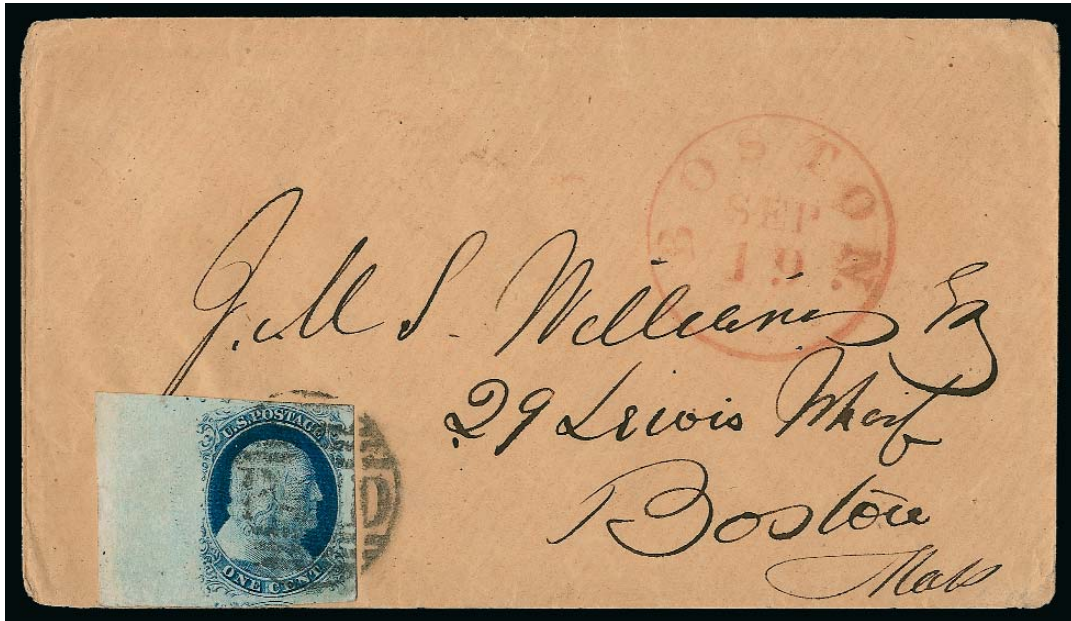 BOSTON
SEP
19
J. M. S. Williams Esq
29 Lewis Wharf
Boston
Mass
U.S. POSTAGE
ONE CENT
PAID